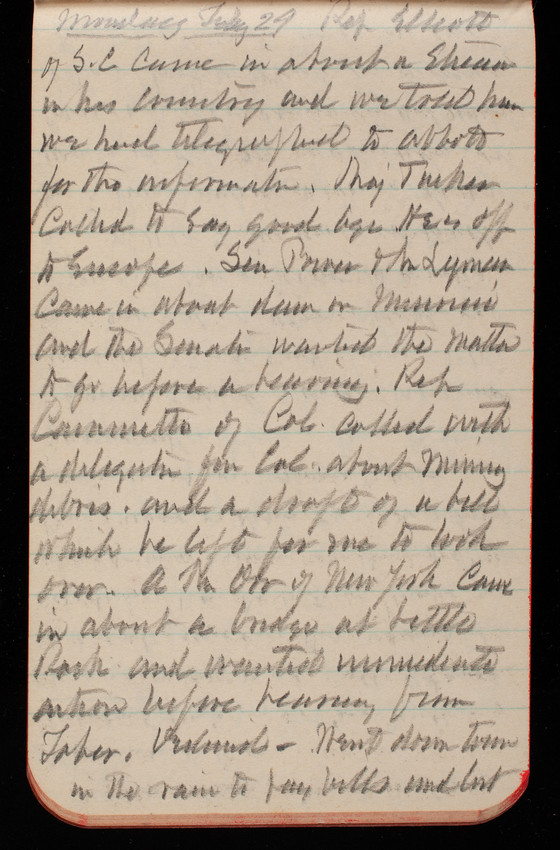 Monday July 29 Rep Elliott
of S.C came in about a Stream
in his country and we told him
we had telegraphed to Abbott
for the informatn. Maj Tucker
Called to say good bye. He is off
to Europe. Sen Power & Mr Lyman
Came in about dam on Missouri
and the Senator wanted the matter
to go before a hearing. Rep
Caminetti of Cal. called with
a delegatn from Cal. about Mining
debris. and a draft of a bill
which he left for me to look
over. A Mr of New York Came
in about a bridge at Little
Rock and wanted immediate
action before hearing from
Taber. Declined - Went down town
in the rain to pay bills and lost